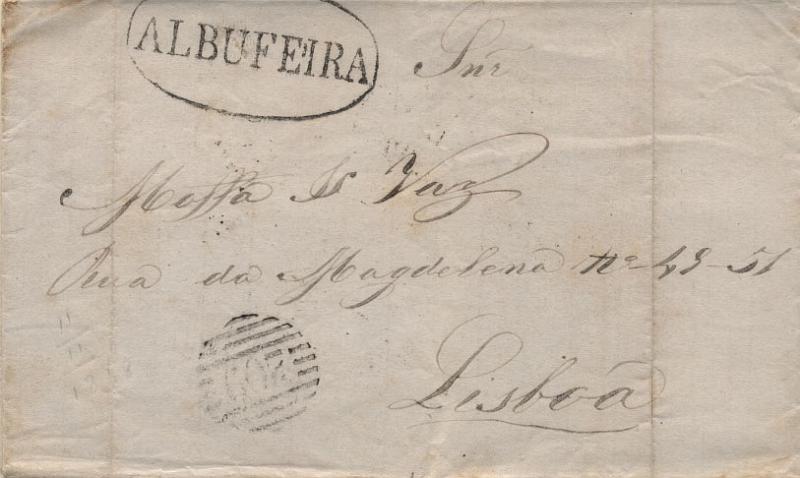 ALBUFEIRA
Snr
Motta & Vaz
Rua da Magdelena nº 49-51
Lisboa